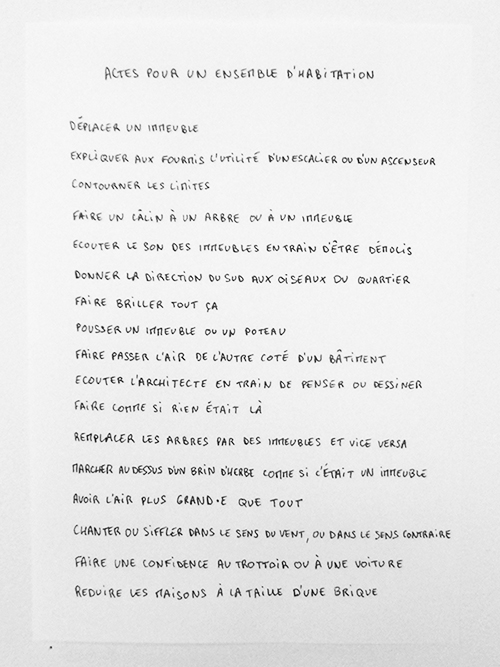 ACTES POUR UN ENSEMBLE D'HABITATION
DÉPLACER UN IMMEUBLE
EXPLIQUER AUX FOURMIS L'UTILITÉ D'UN ESCALIER OU D'UN ASCENSEUR
CONTOURNER LES LIMITES
FAIRE UN CÂLIN À UN ARBRE OU À UN IMMEUBLE
ECOUTER LE SON DES IMMEUBLES EN TRAIN D'ÊTRE DÉMOLIS
DONNER LA DIRECTION DU SUD AUX OISEAUX DU QUARTIER
FAIRE BRILLER TOUT ÇA
POUSSER UN IMMEUBLE OU UN POTEAU
FAIRE PASSER L'AIR DE L'AUTRE COTÉ D'UN BÂTIMENT
ECOUTER L'ARCHITECTE EN TRAIN DE PENSER OU DESSINER
FAIRE COMME SI RIEN ÉTAIT LÀ
REMPLACER LES ARBRES PAR DES IMMEUBLES ET VICE VERSA
MARCHER AU DESSUS D'UN BRIN D'HERBE COMME SI C'ÉTAIT UN IMMEUBLE
AVOIR L'AIR PLUS GRAND·E QUE TOUT
CHANTER OU SIFFLER DANS LE SENS DU VENT, OU DANS LE SENS CONTRAIRE
FAIRE UNE CONFIDENCE AU TROTTOIR OU À UNE VOITURE
REDUIRE LES MAISONS À LA TAILLE D'UNE BRIQUE